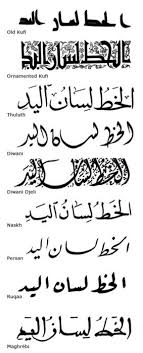 الخط لسان اليد
Old Kufi
الخط لسان اليد
Ornamented Kufi
الخط لسان اليد
Thuluth
الخط لسان اليد
Diwani
الخط لسان اليد
Diwani Djeli
الخط لسان اليد
Naskh
الخط لسان اليد
Persan
الخط لسان اليد
Ruqaa
الخط لسان اليد
Maghrébi